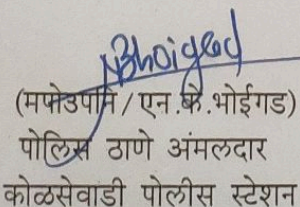 NBhoigad
(मपोउपनि / एन.के.भोईगड)
पोलिस ठाणे अंमलदार
कोळसेवाडी पोलीस स्टेशन